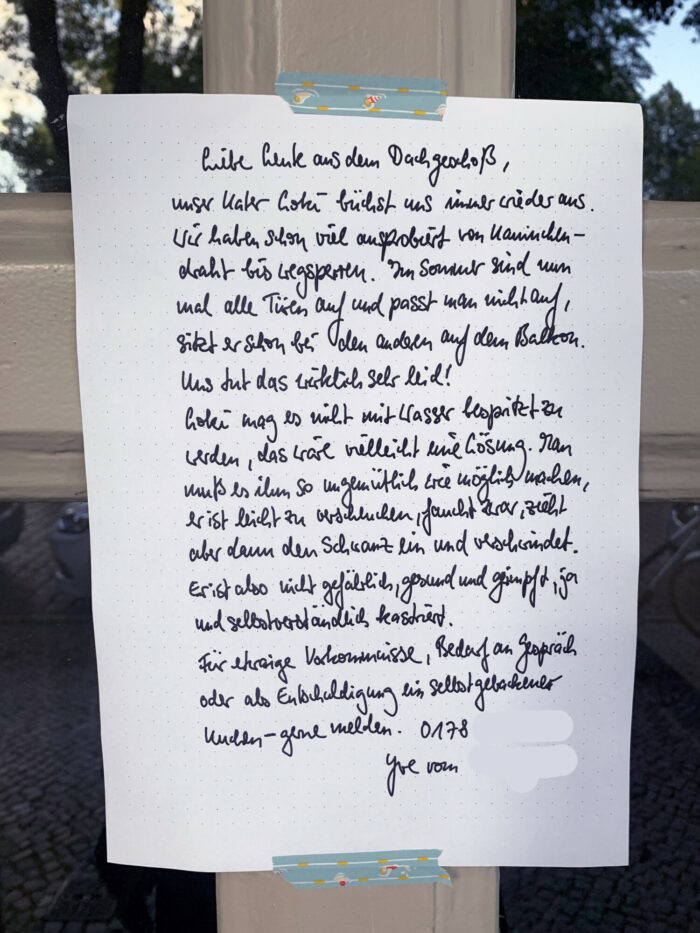 Liebe Leute aus dem Dachgeschoß,
unser Kater Loki büchst uns immer wieder aus.
Wir haben schon viel ausprobiert von Kaninchen-
draht bis wegsperren. Im Sommer sind nun
mal alle Türen auf und passt man nicht auf,
sitzt er schon bei den anderen auf dem Balkon.
Uns tut das wirklich sehr leid!
Loki mag es nicht mit Wasser bespritzt zu
werden, das wäre vielleicht eine Lösung. Man
muß es ihm so ungemütlich wie möglich machen,
er ist leicht zu verscheuchen, faucht zwar, zieht
aber dann den Schwanz ein und verschwindet.
Er ist also nicht gefährlich, gesund und geimpft, ja
und selbstverständlich kastriert.
Für etwaige Vorkommnisse, Bedarf an Gespräch
oder als Entschuldigung ein selbstgebackener
Kuchen - gerne melden. 0178
Yve vom